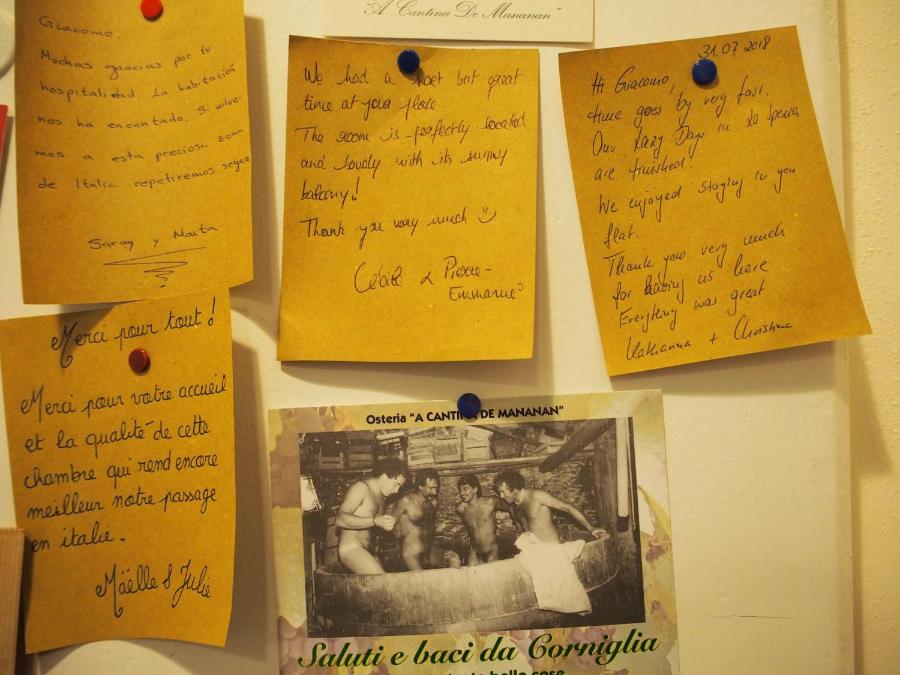 Giacomo.
Muchas gracias por tu
hospitalidad. La habitación
nos ha encantado. Si volve-
mos a esta preciosa zona
de Italia repetiremos seguro
Saray y Marta
"A Cantina De Mananan"
We had a short but great
time at your place.
The room is perfectly located
and lovely with its sunny
balcony!
Thank you very much
& Pierre-
Emmanuel
31.07 2018
Hi Giacomo,
time goes by very fast.
Our Lazy Days in La Spezia
are finished.
We enjoyed staying in you
flat.
Thank you very much
for having us here
Everything was great
Katharina + Christina
Merci pour tout!
Merci pour votre accueil
et la qualité de cette
chambre qui rend encore
meilleur notre passage
en italie.
Maëlle & Julie
Osteria "A CANTINA DE MANANAN"
Saluti e baci da Corniglia
belle cose